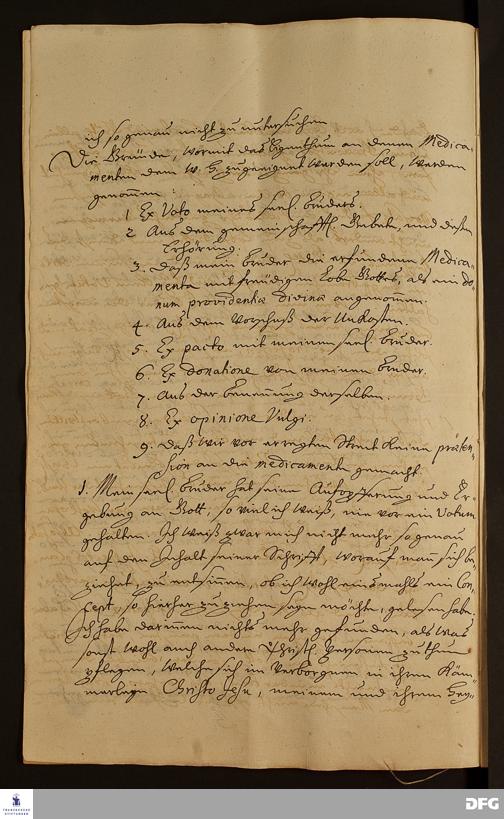 ich so genau nicht zu untersuchen
Die Gründe, wormit das Eigenthum an denen Medica-
menten dem W. H. zugeeignet werden soll, werden
genommen:
1 Ex Voto meines seel. Bruders.
2 Aus dem gemeinschafftl. Gebeth, und deßen
Erhörung.
3. Daß mein Bruder die erfundene Medica-
menta mit freudigen Lobe Gottes, als ein do-
num providentiæ divinæ angenommen.
4. Aus dem Vorschuß der Unkosten.
5. Ex pacto mit meinem seel. Bruder.
6. Ex donatione von meinem Bruder.
7. Aus der Benennung derselben.
8. Ex opinione Vulgi.
9. Daß wir vor erregten Streit keine præten-
sion an die medicamenta gemacht.
1. Mein seel. Bruder hat seine Aufopfferung und Er-
gebung an Gott, so viel ich weiß, nie vor ein Votum
gehalten. Ich weiß zwar mich nicht mehr so genau
auf den Inhalt seiner Schrifft, worauf man sich be-
ziehet, zu entsinnen, ob ich wohl einsmahls ein Con-
cept, so hieher zu ziehen seyn möchte, gelesen habe.
Ich habe darinnen nichts mehr gefunden, als was
sonst wohl auch andere Christl. Personen zu thun
pflegen, welche sich im Verborgnen in ihrem Käm-
merlein Christo Jesu, meinem und ihrem Hey-
FRANCKESCHE
STIFTUNGEN
DFG